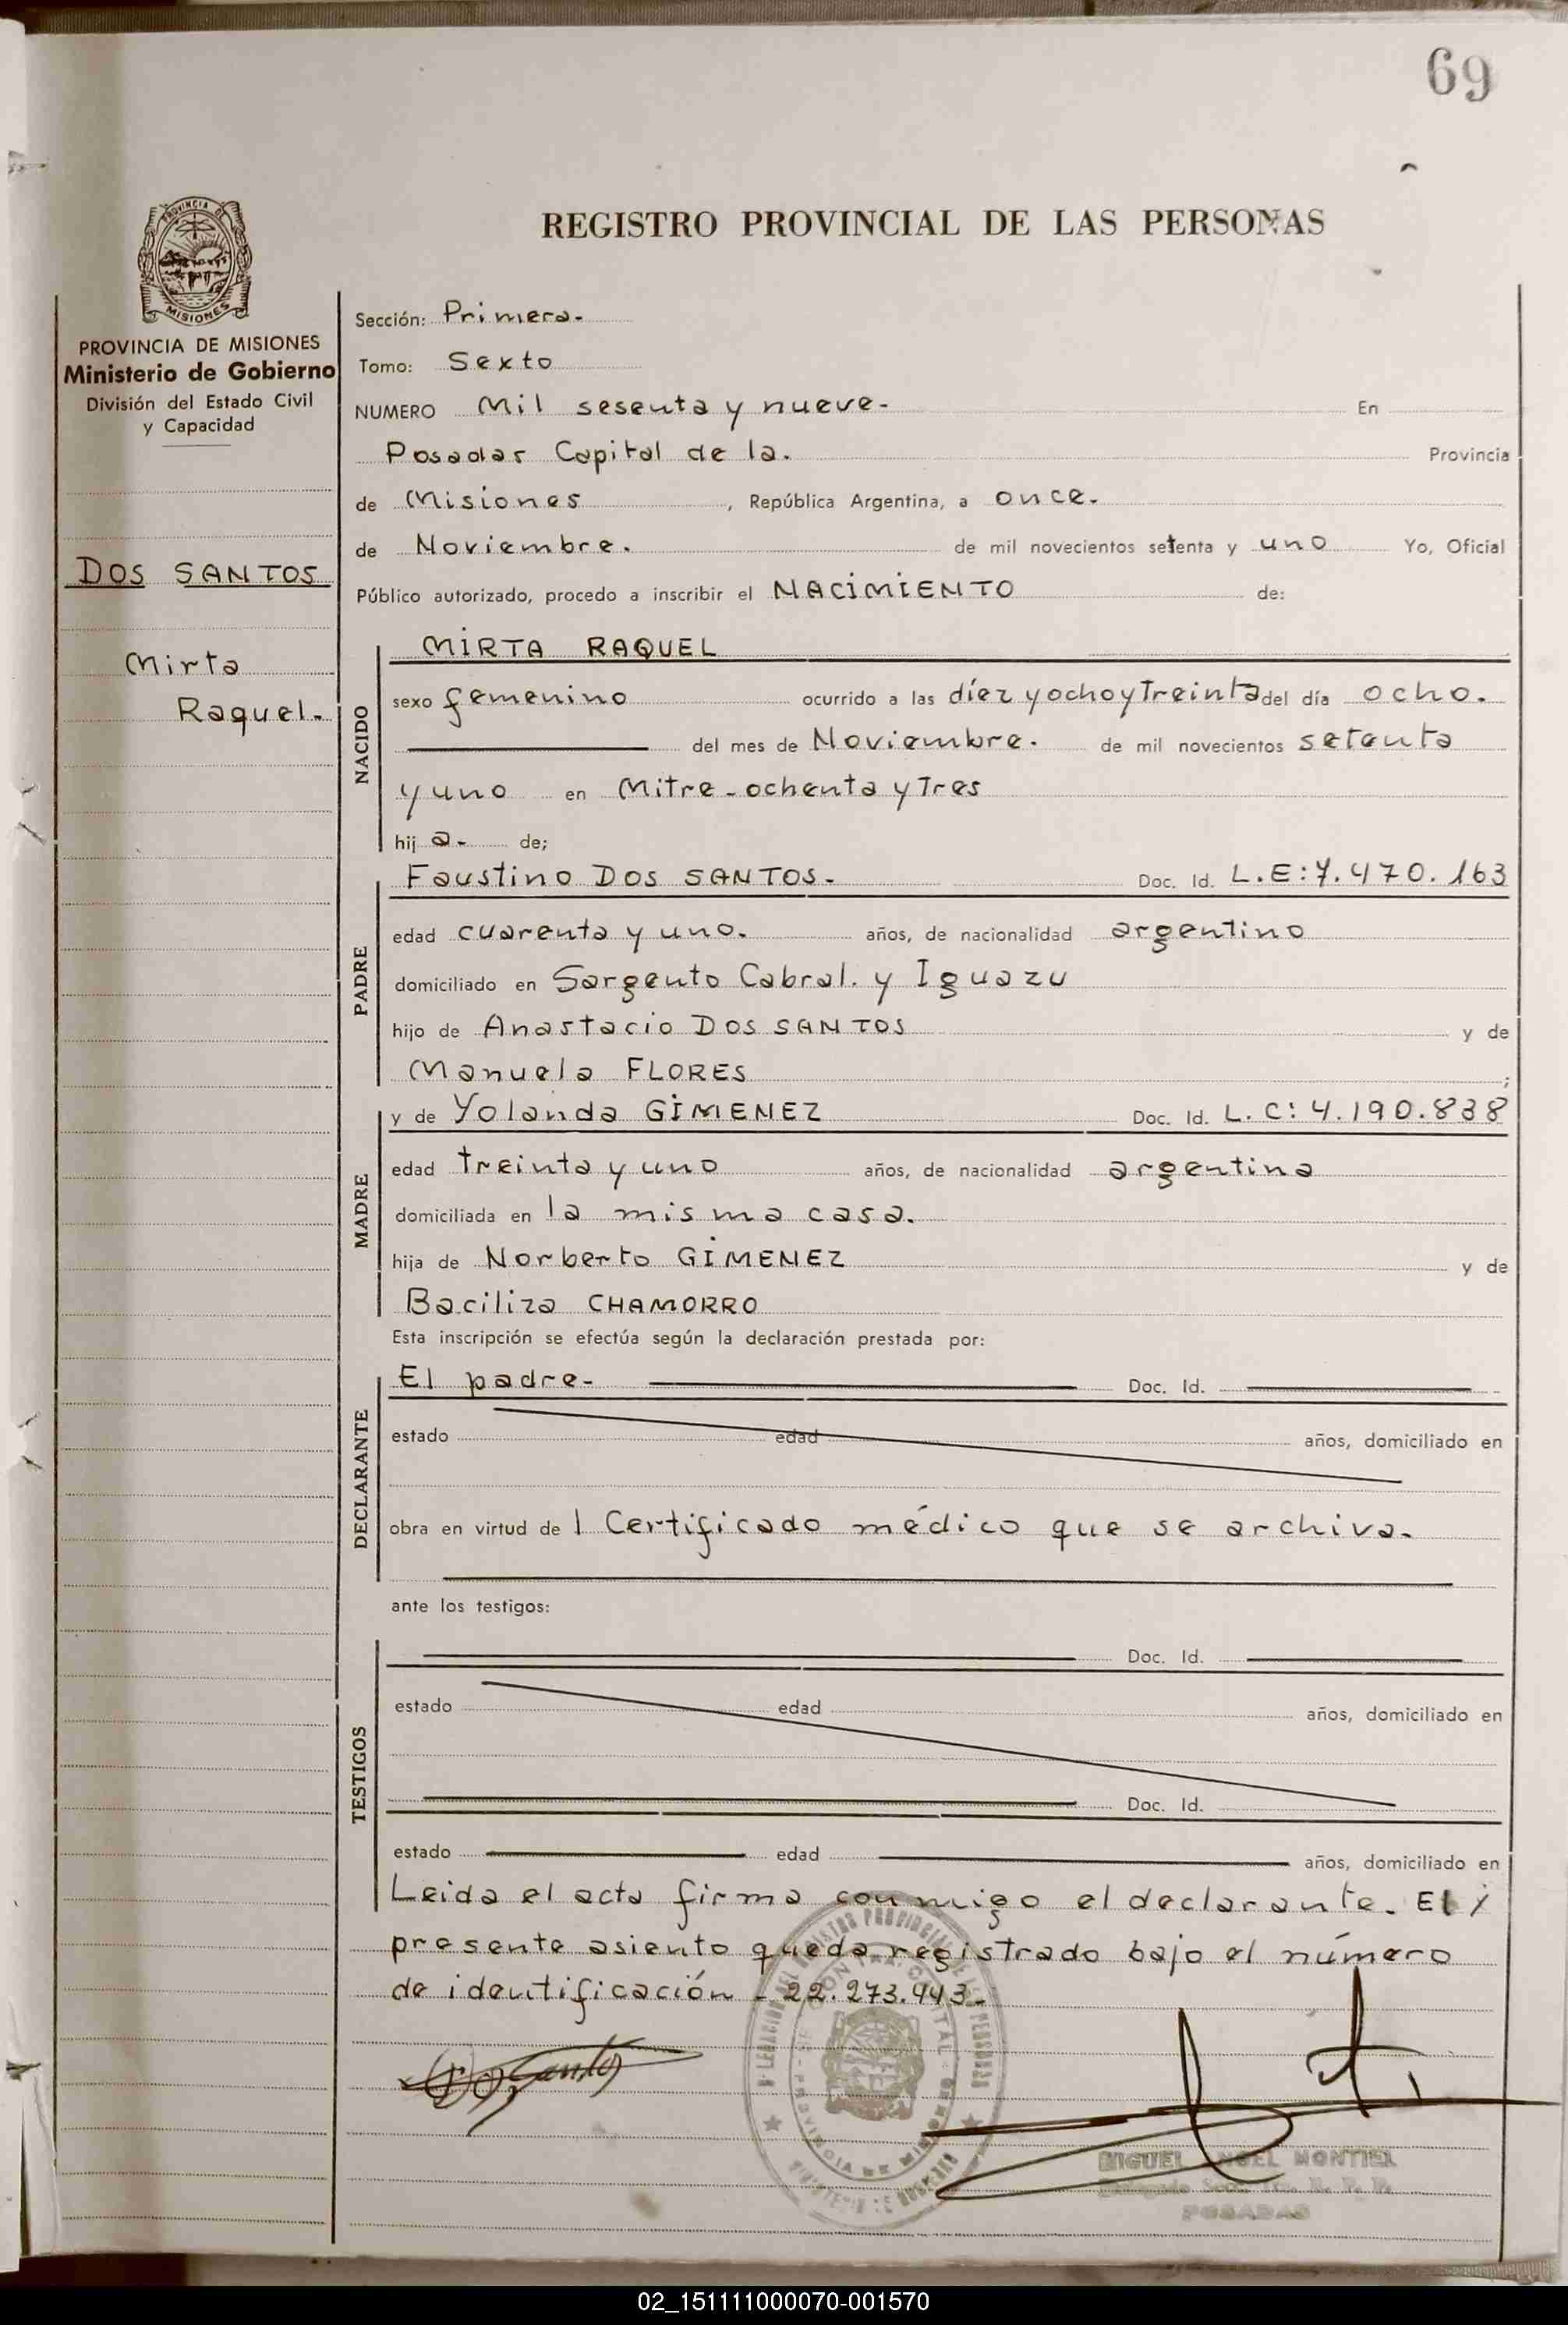 69
REGISTRO PROVINCIAL DE LAS PERSONAS
PROVINCIA DE
MISIONES
PROVINCIA DE MISIONES
Ministerio de Gobierno
División del Estado Civil
y Capacidad
DOS SANTOS
Mirta
Raquel.-
Sección: Primera.-
Tomo: Sexto
NUMERO Mil sesenta y nueve.- En
Posadas Capital de la. Provincia
de Misiones, República Argentina, a once.
de Noviembre. de mil novecientos setenta y uno Yo, Oficial
Público autorizado, procedo a inscribir el NACIMIENTO de:
NACIDO
MIRTA RAQUEL
sexo femenino ocurrido a las díez y ocho y Treinta del día ocho.
del mes de Noviembre. de mil novecientos setenta
y uno en Mitre - ochenta y Tres
hij a.- de;
PADRE
Faustino DOS SANTOS.- Doc. Id. L.E:7.470.163
edad cuarenta y uno. años, de nacionalidad argentino
domiciliado en Sargento Cabral. y Iguazu
hijo de Anastacio DOS SANTOS y de
Manuela FLORES ;
MADRE
y de Yolanda GIMENEZ Doc. Id. L.C:4.190.838
edad treinta y uno años, de nacionalidad argentina
domiciliada en la misma casa.
hija de Norberto GIMENEZ y de
Baciliza CHAMORRO
Esta inscripción se efectúa según la declaración prestada por:
DECLARANTE
El padre.- Doc. Id.
estado edad años, domiciliado en
obra en virtud de 1 Certificado médico que se archiva.
ante los testigos:
TESTIGOS
Doc. Id.
estado edad años, domiciliado en
Doc. Id.
estado edad años, domiciliado en
Leida el acta firma conmigo el declarante. El
presente asiento queda registrado bajo el número
de identificación - 22.273.443-
MIGUEL ANGEL MONTIEL
POSADAS
02_151111000070-001570